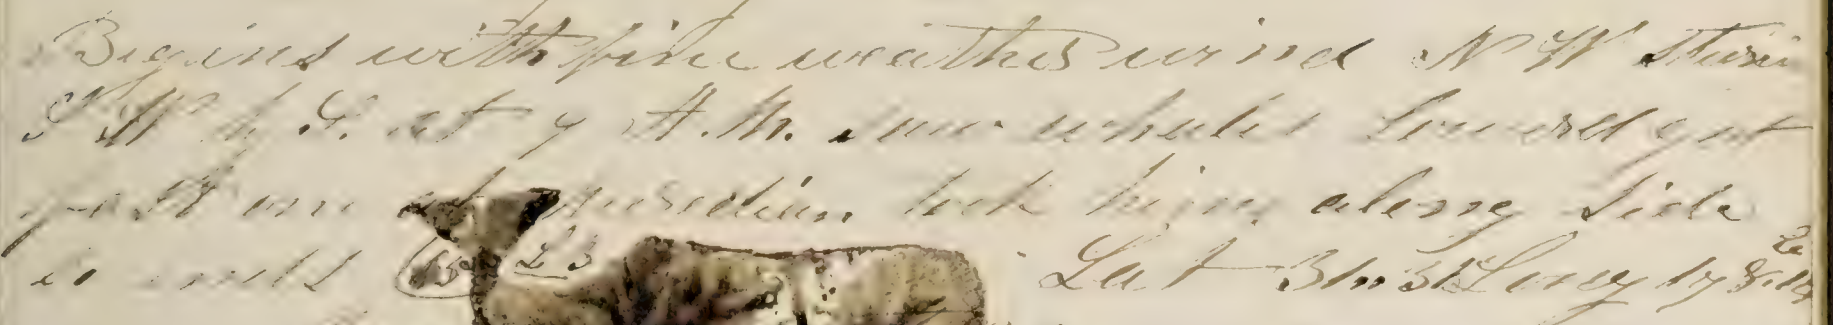 Begins with fine weather wind N W Steering
S W by S. at 7 A.M. saw whales Lowerd got
fast one at meridian took him along Side
Lat 31..31 Long 178..